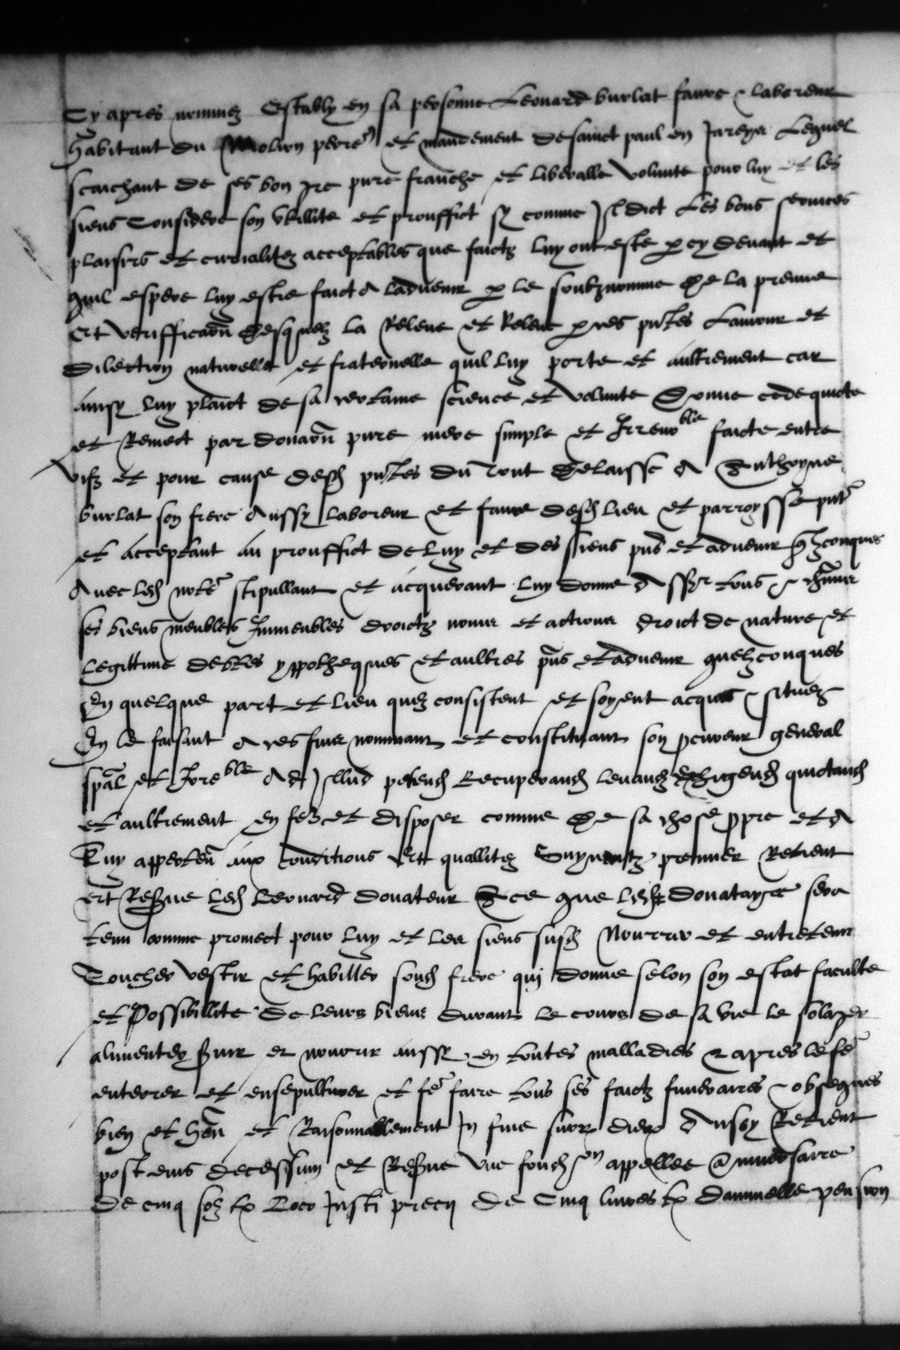 Cy apres nommez Estably en sa personne Leonard burlat fame & laboreur
habitant du Molion et mandement de sainct paul en Jarege Lequel
scaichant de ses bon gre pure franche et liberalle volunte pour luy et les
siens Considere son utillite et prouffict sy comme Il dict Les bons services
plaisirs et curialitez acceptables que faictz luy ont este p cy devant et
quil espere luy estre faict A ladvenir p le soubznomme De la preuve
Et veriffication desquelz la Releve et Releve p ces pntes Lamour et
dilection naturelle et fraternelle quil luy porte et aultrement car
ainsy luy plaict de sa certaine science et volunte Donne cede quicte
et Remect par donaon pure mere simple et Irrevoble faicte entre
vifz et pour cause desd pntes du tout Delaisse A Anthoyne
burlat son frere Aussy laboreur et fame desd lieu et parroysse pnt
et acceptant au prouffict de luy et des siens pns et advenir qzconques
Avec led note stipullant et acquerant luy donne Asscr tous &
ses biens meubles Immeubles droictz noms et actions droict de nature et
Legittime debtes yppotheques et aultres pns et advenir quelzconques
En quelque part et lieu quez consistent et soyent acquis & situez
En le faisant A ces fins nommant et constituant son pcureur general
spal et Irreble Ad Illud petend Recuperand levand Exigend quictand
et aultrement en fere et disposer comme De sa chose ppre et A
Luy apperten aux conditions et quallitez Suyvantz premier Retient
et Reserve led Leonard donateur Et ce que led donatayre sera
tenu comme promect pour luy et les siens susd Nourrir et entretenir
Coucher vestir et habiller sond frere qui donne selon son estat faculte
et Possibillite De leurs biens durant le cours de sa vie le solager
alimenter servir et nourrir aussy en toutes malladies & apres le fe
enterrer et ensepulturer et fe faire tous ses faictz funeraires & obseques
bien et hon et Raisonnablement In fine suorz dierz Aussy Retient
post eius decessum et Reserve une fond on appellee Anniversaire
de cinq solz tz Loco Justi precii de Cinq livres tz Dannuelle pension